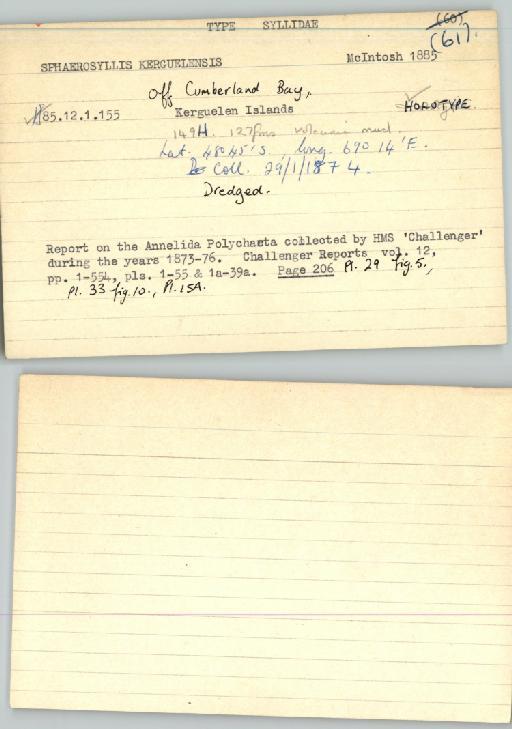 TYPE SYLLIDAE
(60)
(61).
SPHAEROSYLLIS KERGUELENSIS McIntosh 1885
Off Cumberland Bay,
85.12.1.155 Kerguelen Islands HOLOTYPE.
149H. 127fms volcanic mud.
Lat. 48045'S. long. 690 14'E.
Coll. 29/1/1874.
Dredged.
Report on the Annelida Polychaeta collected by HMS 'Challenger'
during the years 1873-76. Challenger Reports vol. 12,
pp. 1-554, pls. 1-55 & 1a-39a. Page 206 Pl. 29 fig. 5.,
Pl. 33 fig. 10., Pl. 15A.